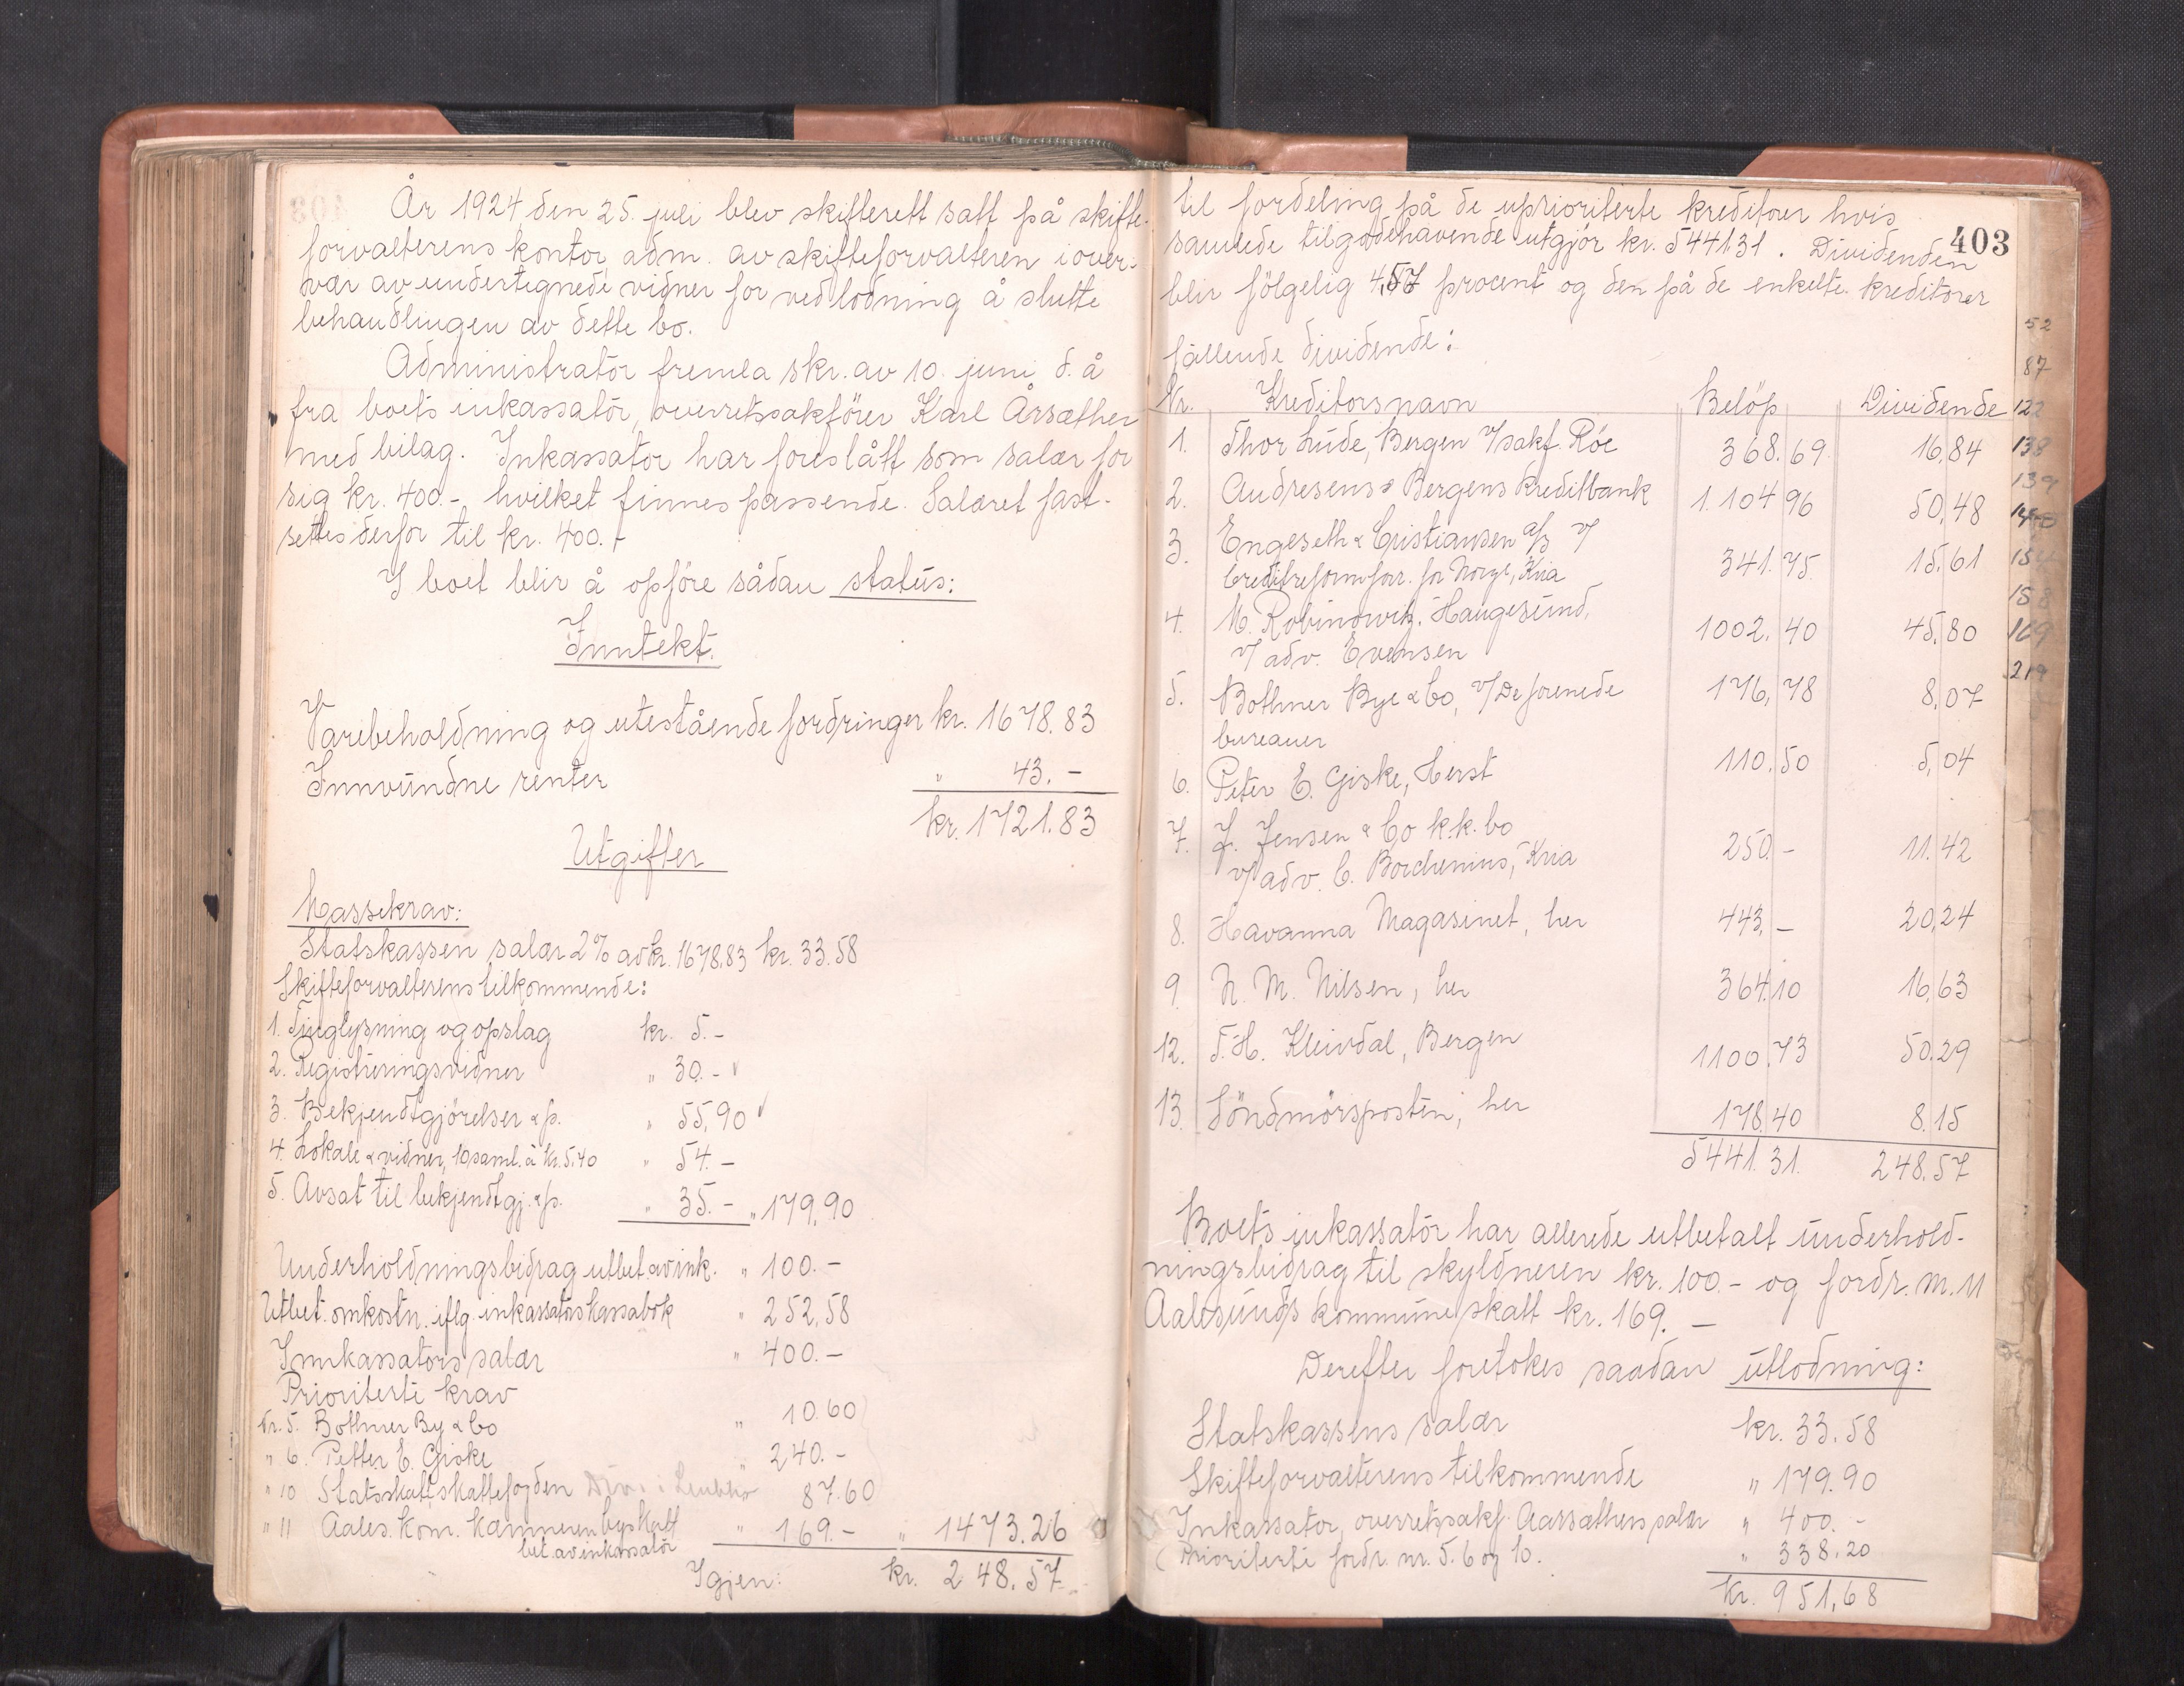 År 1924 den 25. juli blev skifterett satt på skifte-
forvalterens kontor adm. av skifteforvalteren i over-
vær av undertegnede vidner for ved lodning å slutte
behandlingen av dette bo.
Administrator fremla skr. av 10. juni d. å
fra boets inkassator, overretssakförer Karl Årsæther
med bilag. Inkassator har foreslått som salær for
sig kr. 400.- hvilket finnes passende. Salæret fast-
settes derfor til kr. 400.-
I boet blir å opföre sådan status:
Inntekt.
Varebeholdning og utestående fordringer kr. 1678.83
Innvundne renter " 43.-
kr. 1721.83
Utgifter
Massekrav:
Statskassen salær 2% av kr. 1678.83 kr. 33.58
Skifteforvalterens tilkommende:
1. Tinglysning og opslag kr. 5.-
2. Registreringsvidner " 30.-
3. Bekjendtgjörelser & p. " 55,90
4. Lokale & vidner, 10 saml. à kr. 5.40 " 54.-
5. Avsat til bekjendtgj. & p. " 35.- " 179.90
Underholdningsbidrag utbet. av ink. " 100.-
Utbet. omkostn. iflg. inkassators kassabok " 252,58
Innkassators salær " 400.-
Prioriterte krav
Nr. 5. Bothner By & Co " 10.60
" 6. Petter E. Giske " 240.-
" 10 Statsskatt, skattefogden 87.60
" 11 Aales. Kom. Kæmneren byskatt " 169.- " 1473.26
bet. av inkassator
Igjen: kr. 248.57
403
til fordeling på de uprioriterte kreditorer hvis
samlede tilgodehavende utgjör kr. 544131. Dividenden
blir fölgelig 4,57 procent og den på de enkelte kreditorer
fallende dividende:
Nr. Kreditors navn Belöp Dividende
1. Thor Lude, Bergen v/sakf. Röe 368.69 16,84
2. Andresens & Bergens Kreditbank 1.104 96 50,48
3. Engeseth & Cristiansen A/S v/
Creditreformforr. for Norge, Kria 341.75 15.61
4. M. Robinowitz. Haugesund,
v/ adv. Evensen 1002.40 45.80
5. Bothner Bye & Co, v/De forenede
bureauer 176,78 8,07
6. Peter E. Giske, Herst 110.50 5,04
7. J. Jensen & Co k.k. bo
v/adv. C. Borchenius, Kria 250.- 11.42
8. Havanna Magasinet, her 443,- 20,24
9. N. M. Nilsen, her 364.10 16,63
12. T. H. Kleivdal, Bergen 1100.73 50.29
13. Söndmörsposten, her 178.40 8.15
5441.31. 248.57
Boets inkassator har allerede utbetalt underhold-
ningsbidrag til skyldneren kr. 100.- og fordr. nr. 11
Aalesunds kommuneskatt kr. 169.-
Derefter foretokes saadan utlodning:
Statskassens salær kr. 33.58
Skifteforvalterens tilkommende " 179.90
Inkassator, overretssakf. Aarsæthers salær " 400.-
Prioriterte fordr. nr. 5. 6 og 10. " 338.20
Kr. 951,68
52
87
122
138
139
158
169
219